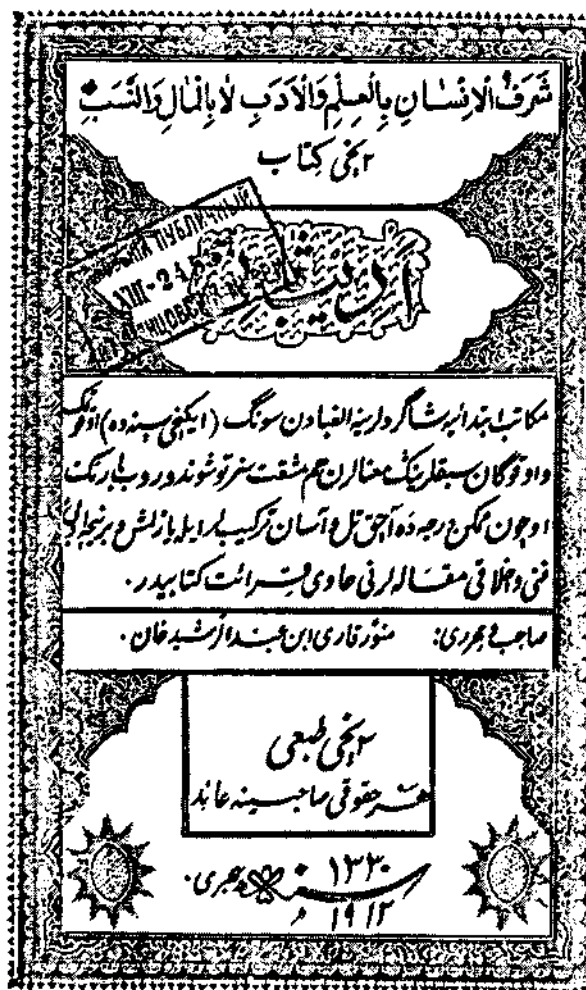 شَرَفُ الْاِنْسَانِ بِالْعِلْمِ وَالْاَدَبِ لَا بِالْمَالِ وَالنَّسَبِ
۲ نچی کتاب
ПУБЛИЧНЫЙ
VIII-24
مکاتب ابتدائیه شاگردلرینه الفبادن سونگ (ایکنچی سنه ده) اوقومک
و اوقوگان سبقلرینگ معنالرن هم مشقت سز توشوندوروب بارمک
اوچون ممکن درجه ده آچق تل و آسان ترکیبلر ایله یازلمش و برنچه
فنی و اخلاقی مقاله لرنی حاوی قرائت کتابیدر.
صاحب و محرری: منور قاری ابن عبدالرشید خان.
۲ نچی طبعی
هر حقوقی صاحبینه عائد
۱۳۳۰ سنه هجری.
۱۹۱۲ م